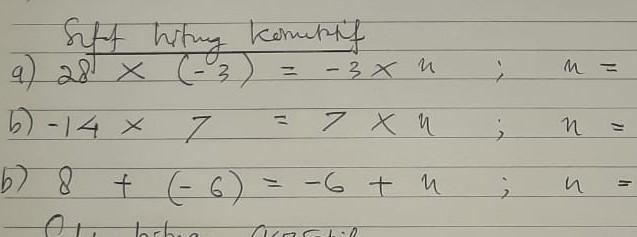 Sifat hitung komutatif
a) 28 × (-3) = -3 × n ; n =
b) -14 × 7 = 7 × n ; n =
b) 8 + (-6) = -6 + n ; n =
hitung